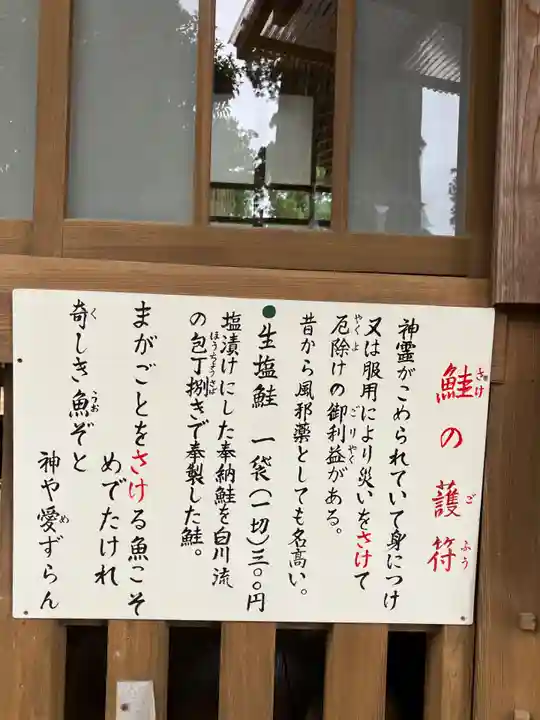 鮭の護符
さけ
ごふう
神霊がこめられていて身につけ
又は服用により災いをさけて
厄除けの御利益がある。
やくよ
ごりやく
昔から風邪薬としても名高い。
●生塩鮭 一袋(一切)三〇〇円
塩漬けにした奉納鮭を白川流
の包丁捌きで奉製した鮭。
ほうちょうさば
まがごとをさける魚こそ
めでたけれ
奇しき魚ぞと
く
うお
神や愛ずらん
め